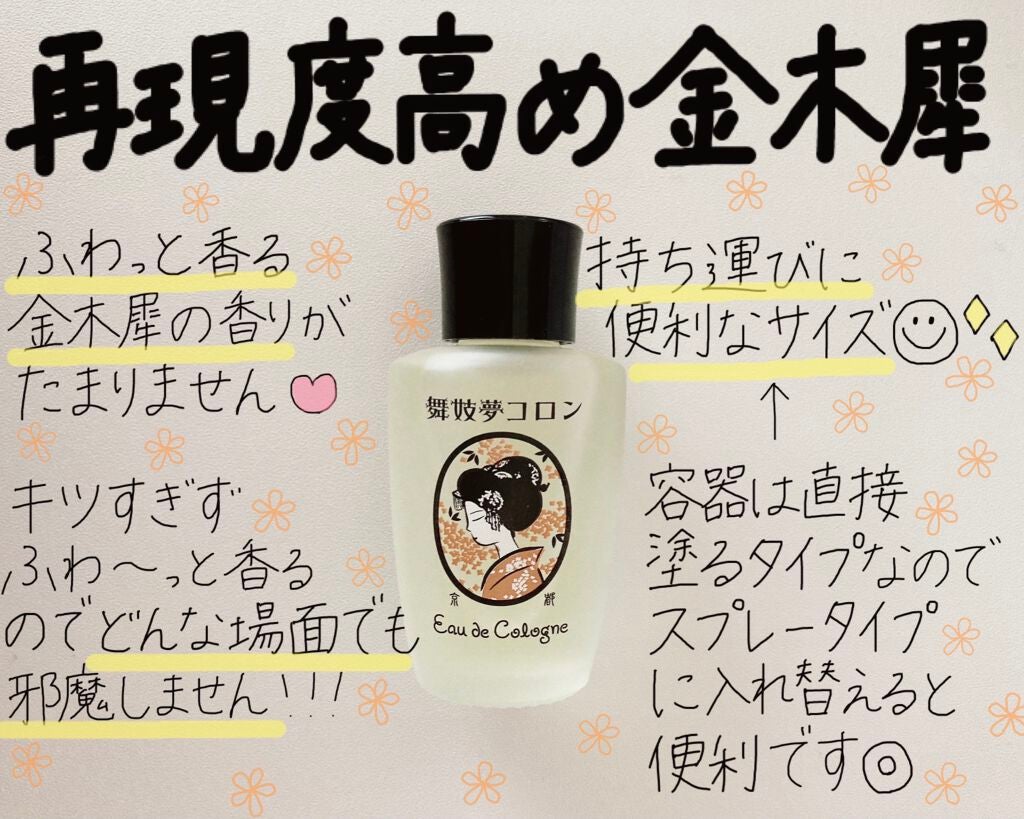 再現度高め金木犀
ふわっと香る
金木犀の香りが
たまりません
キツすぎず
ふわ〜っと香る
のでどんな場面でも
邪魔しません!!!
舞妓夢コロン
京都
Eau de Cologne
持ち運びに
便利なサイズ
↑
容器は直接
塗るタイプなので
スプレータイプ
に入れ替えると
便利です◎